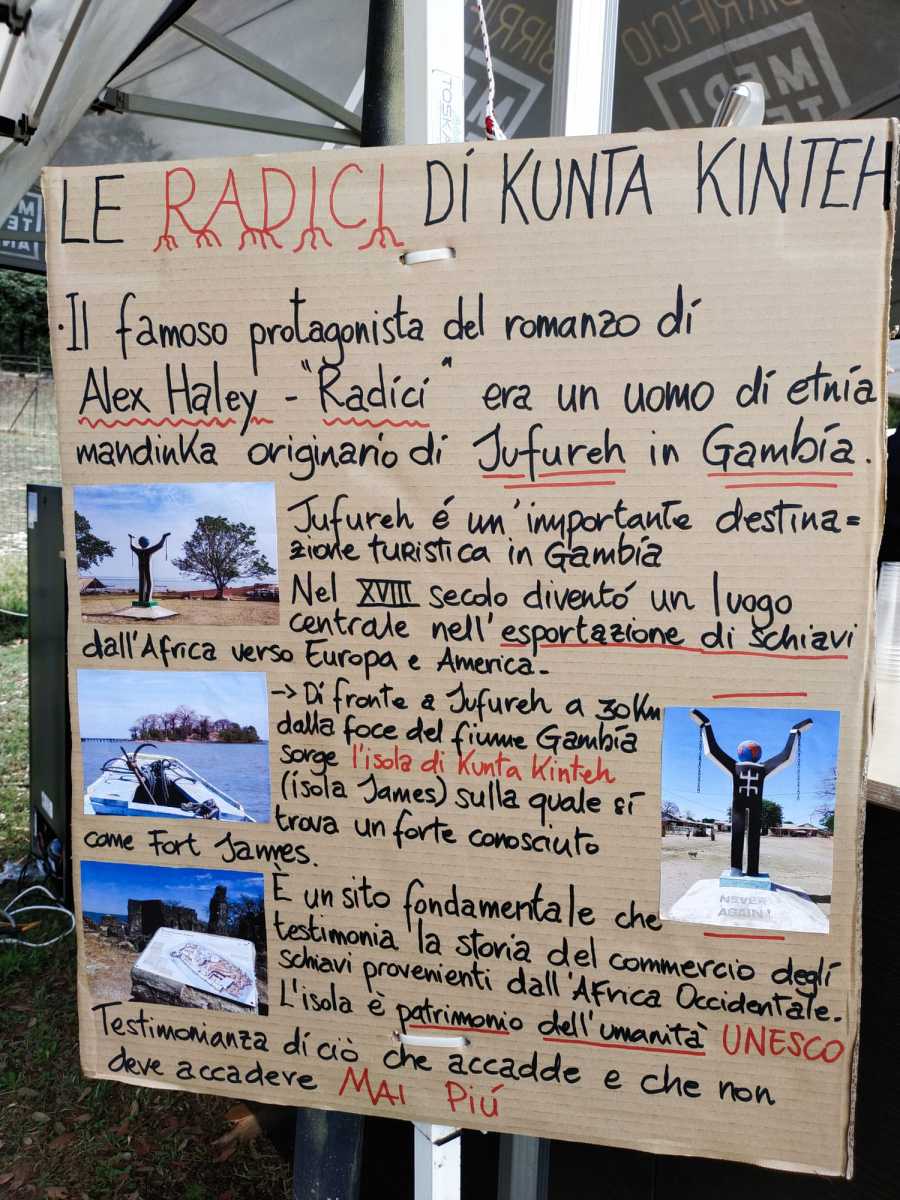 BIRRIFICIO
MERI
TE
TOSKA
LE RADICI DI KUNTA KINTEH
·Il famoso protagonista del romanzo di
Alex Haley - "Radici" era un uomo di etnia
mandinka originario di Jufureh in Gambia.
Jufureh é un'importante destina=
zione turistica in Gambia
Nel XVIII secolo diventó un luogo
centrale nell'esportazione di schiavi
dall'Africa verso Europa e America.
-> Di fronte a Jufureh a 30Km
dalla foce del fiume Gambia
sorge l'isola di Kunta Kinteh
(isola James) sulla quale si
trova un forte conosciuto
come Fort James.
È un sito fondamentale che
testimonia la storia del commercio degli
schiavi provenienti dall'Africa Occidentale.
L'isola è patrimonio dell'umanità UNESCO
Testimonianza di ciò che accadde e che non
deve accadere MAI PIÚ
NEVER
AGAIN!